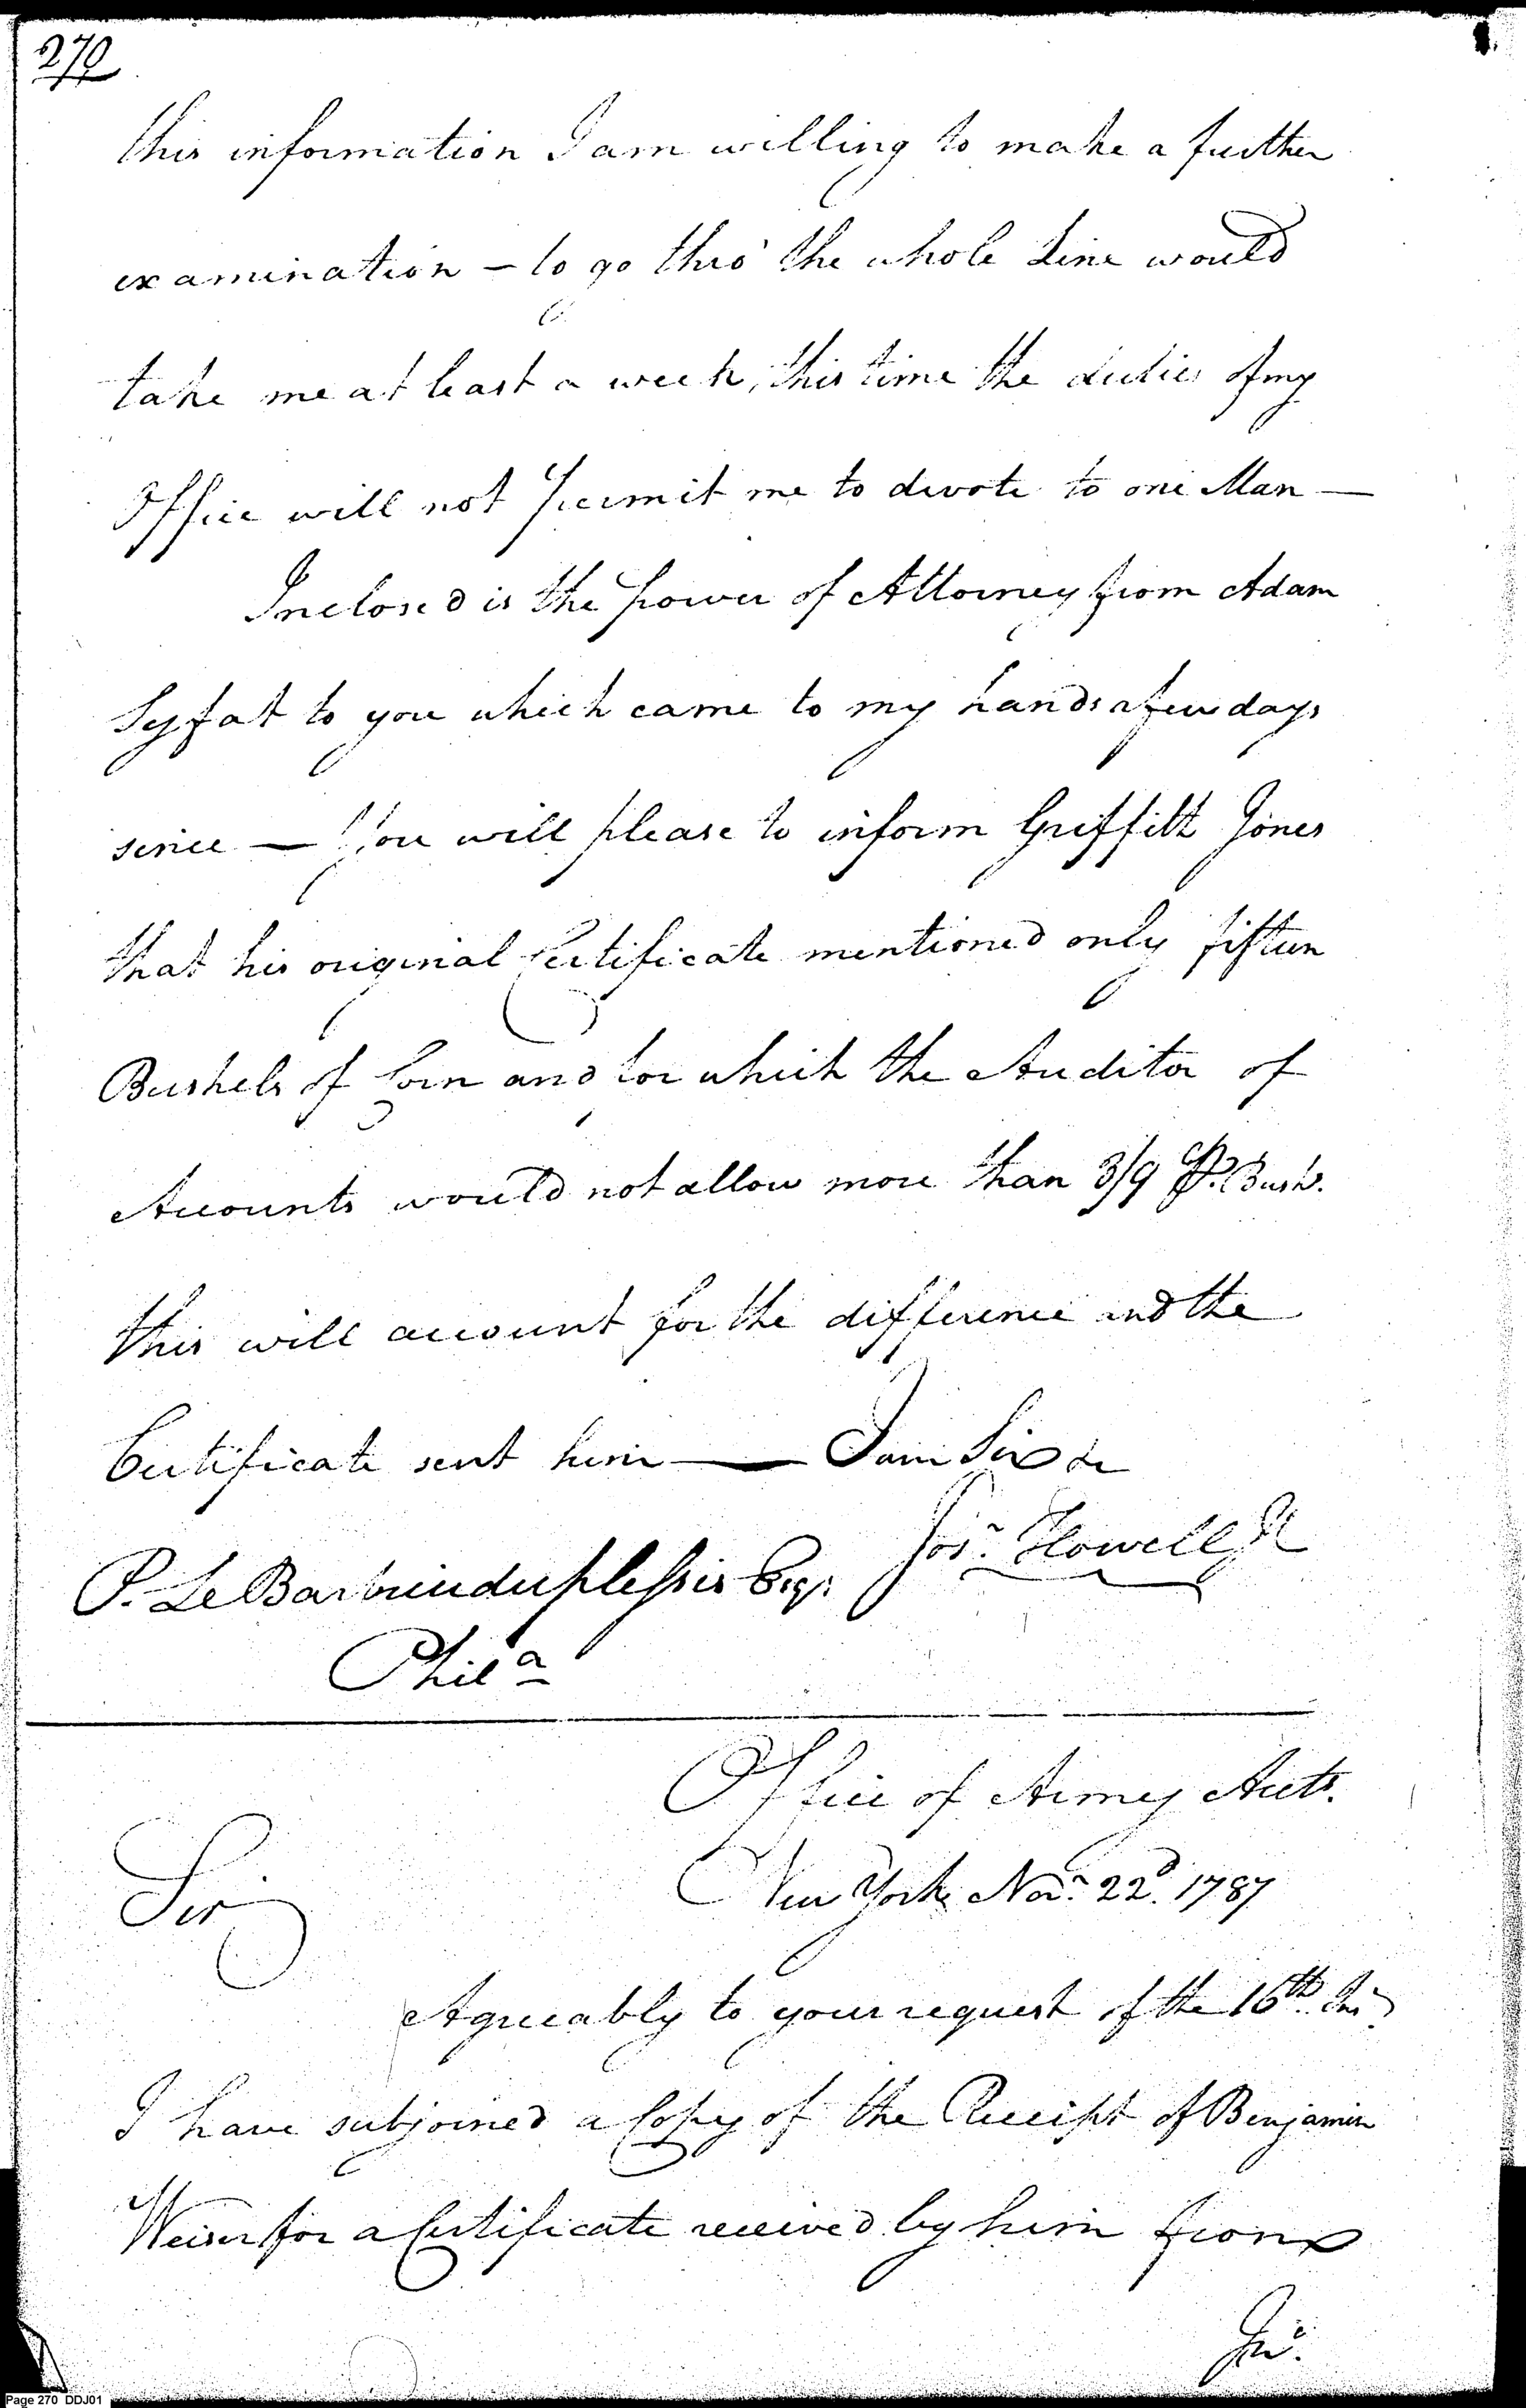 270
this information I am willing to make a further
examination – to go thro' the whole Line would
take me at least a week, this time the duties of my
Office will not permit me to devote to one Man —
Inclosed is the power of Attorney from Adam
Syfat to you which came to my hands a few days
since — You will please to inform Griffith Jones
that his original Certificate mentioned only fifteen
Bushels of Corn and for which the Auditor of
Accounts would not allow more than 3/9 ⅌. Bush.
this will account for the difference and the
Certificate sent him — I am Sir &c
Jos. Howell Jr
P. Le Barbier duplessis Esqr.
Phila
Office of Army Accts.
New York Nov. 22d. 1787
Sir
Agreeably to your request of the 16th. Inst.
I have subjoined a Copy of the Receipt of Benjamin
Weiser for a Certificate received by him from
Jno.
Page 270 DDJ01